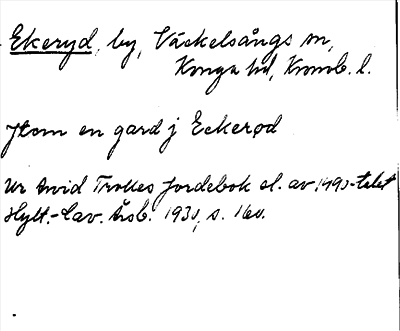 Ekeryd, by, Väckelsångs sn,
Konga hd, Kronob. l.
Jtem en gard j Eckerød
Ur Arvid Trolles jordebok sl. av 1490-talet
Hylt.-Cav. Årsb. 1930, s. 160.